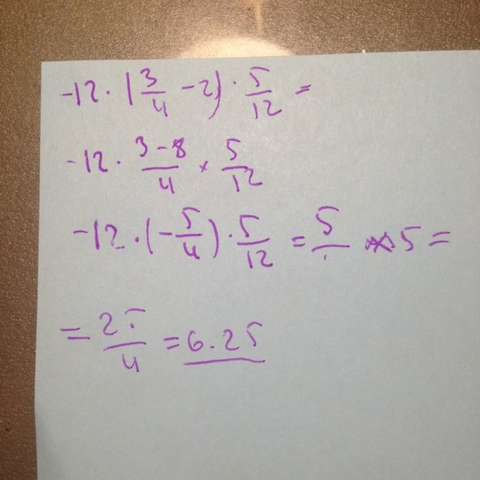 -12 · (3/4 - 2) · 5/12 =
-12 · (3-8)/4 × 5/12
-12 · (-5/4) · 5/12 = 5/. × 5 =
= 25/4 = 6.25